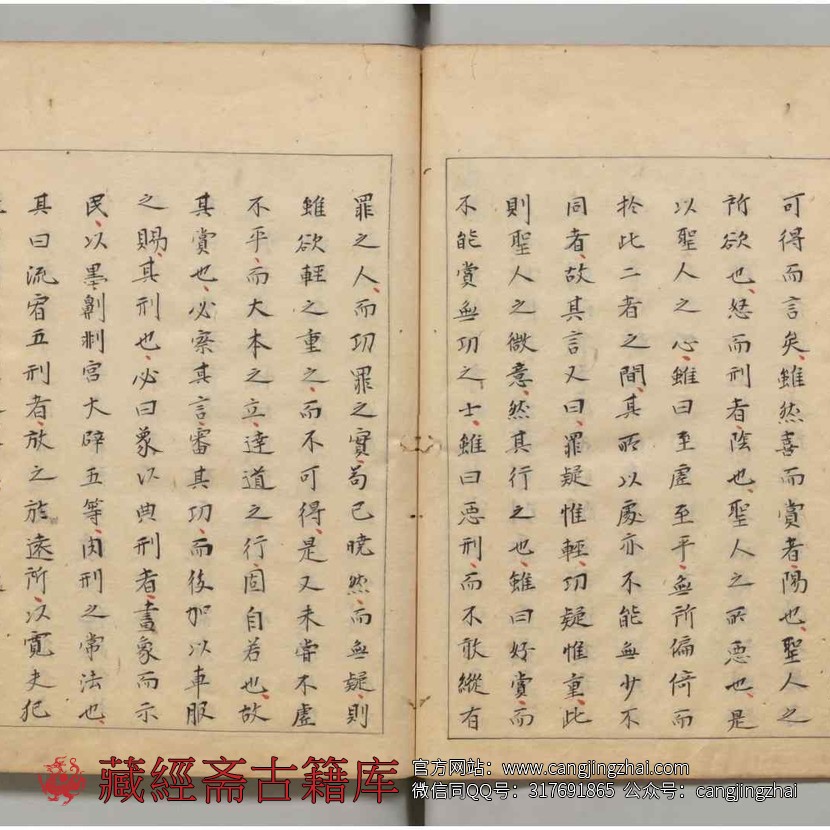 可得而言矣、雖然喜而賞者、陽也、聖人之
所欲也、怒而刑者、陰也、聖人之所惡也、是
以聖人之心、雖曰至虛至平、無所偏倚而
於此二者之間、其所以處亦不能無少不
同者、故其言又曰、罪疑惟輕、功疑惟重、此
則聖人之微意、然其行之也、雖曰好賞、而
不能賞無功之士、雖曰惡刑、而不敢縱有
罪之人、而功罪之實、苟已曉然、而無疑、則
雖欲輕之重之、而不可得、是又未嘗不虛
不平、而大本之立、達道之行、固自若也、故
其賞也、必察其言、審其功、而後加以車服
之賜、其刑也、必曰象以典刑者、畫象而示
民、以墨劓剕宮大辟五等、肉刑之常法也、
其曰流宥五刑者、放之於遠所、以寬夫犯
藏經斋古籍库
官方网站：www.cangjingzhai.com
微信同QQ号：317691865 公众号：cangjingzhai